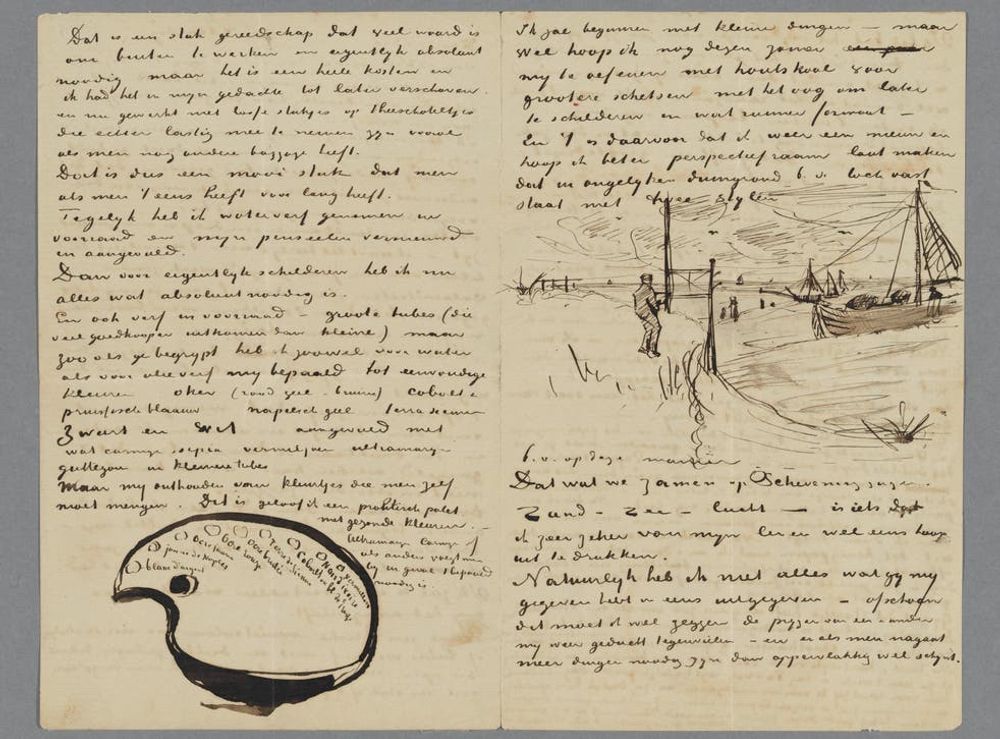 Dat is een stuk gereedschap dat veel waard is
om buiten te werken en eigentlyk absoluut
noodig maar het is een heele kosten en
ik had het in myn gedachte tot later verschoven
en nu gewerkt met losse stukjes op theeschoteltjes
die echter lastig mee te nemen zyn vooral
als men nog andere baggage heeft.
Dat is dus een mooi stuk dat men
als men 't eens heeft voor lang heeft.
Tegelyk heb ik waterverf genomen in
voorraad en myn penseelen vernieuwd
en aangevuld.
Dan voor eigentlyk schilderen heb ik nu
alles wat absoluut noodig is.
En ook verf in voorraad – groote tubes (die
veel goedkooper uitkomen dan kleine) maar
zoo als ge begrypt heb ik zoowel voor water
als voor olieverf my bepaald tot eenvoudige
kleuren oker (rood geel – bruin) cobolt &
pruissisch blaauw napelsch geel terra sienna
Zwart en Wit aangevuld met
wat carmyn sepia vermiljoen ultramaryn
guttegom in kleinere tubes
Maar my onthouden van kleurtjes die men zelf
moet mengen. Dit is geloof ik een praktisch palet
met gezonde kleuren. –
Ultramaryn Carmyn of
als anders voegt men
by in geval 't bepaald
noodig is.
blanc d'argent
jaune de Naples
Ocre jaune
Ocre rouge
Ocre brulee
Terre sienne
Cobalt
Noir d'ivoire
vermillon
Ik zal beginnen met kleine dingen – maar
wel hoop ik nog dezen zomer
my te oefenen met houtskool voor
grootere schetsen met het oog om later
te schilderen in wat ruimer formaat –
En 't is daarvoor dat ik weer een nieuw en
hoop ik beter perspectiefraam laat maken
dat in ongelyken duingrond b.v. toch vast
staat met twee stylen
b.v. op deze manier
Dat wat we zamen op Scheveningen zagen.
Zand – Zee – lucht – is iets dat
ik zeer zeker van myn leven wel eens hoop
uit te drukken.
Natuurlyk heb ik niet alles wat gy my
gegeven hebt in eens uitgegeven – ofschoon
dit moet ik wel zeggen de pryzen van een & ander
my weer geducht tegenvielen – en er als men nagaat
meer dingen noodig zyn dan oppervlakkig wel schynt.